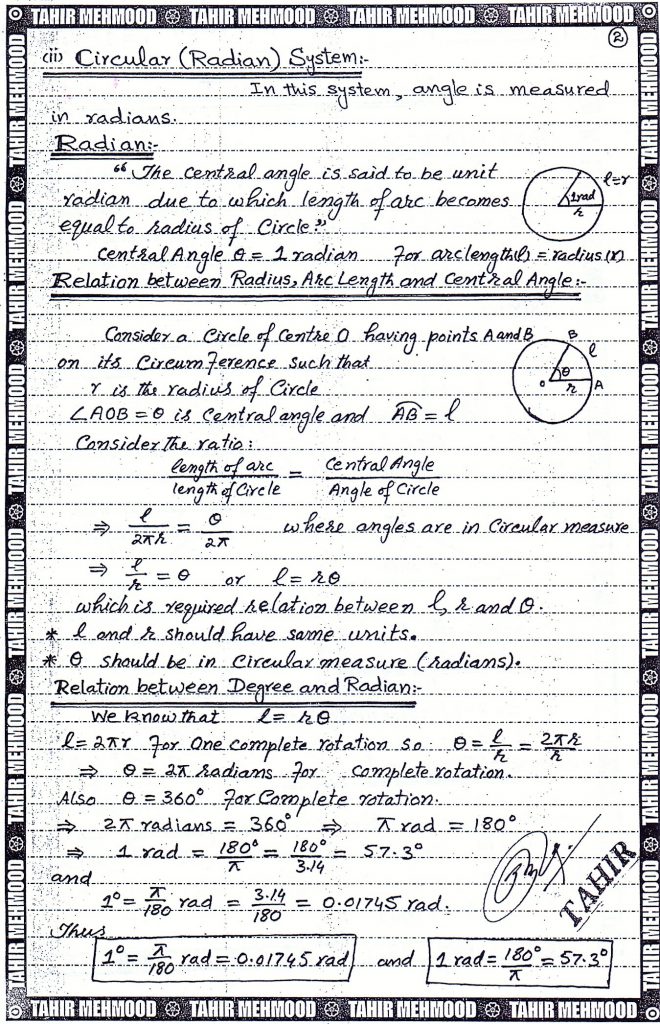 TAHIR MEHMOOD TAHIR MEHMOOD TAHIR MEHMOOD TAHIR MEHMOOD
2
(ii) Circular (Radian) System:-
In this system, angle is measured
in radians.
Radian:-
"The central angle is said to be unit
radian due to which length of arc becomes
equal to radius of Circle."
l=r
1rad
r
Central Angle θ = 1 radian For arc length(l) = radius (r)
Relation between Radius, Arc Length and Central Angle:-
Consider a Circle of Centre O having points A and B
on its Circumference such that
r is the radius of Circle
∠AOB = θ is Central angle and AB = l
B
l
θ
o
r
A
Consider the ratio:
length of arc / length of Circle = Central Angle / Angle of Circle
⇒ l/2πr = θ/2π where angles are in Circular measure
⇒ l/r = θ or l = rθ
which is required relation between l, r and θ.
* l and r should have same units.
* θ should be in Circular measure (radians).
Relation between Degree and Radian:-
We know that l = rθ
l = 2πr For One complete rotation so θ = l/r = 2πr/r
⇒ θ = 2π radians For complete rotation.
Also θ = 360° For Complete rotation.
⇒ 2π radians = 360° ⇒ π rad = 180°
⇒ 1 rad = 180°/π = 180°/3.14 = 57.3°
and
1° = π/180 rad = 3.14/180 = 0.01745 rad.
TAHIR
Thus
1° = π/180 rad = 0.01745 rad and 1 rad = 180°/π = 57.3°
TAHIR MEHMOOD TAHIR MEHMOOD TAHIR MEHMOOD TAHIR MEHMOOD
TAHIR MEHMOOD TAHIR MEHMOOD TAHIR MEHMOOD TAHIR MEHMOOD TAHIR MEHMOOD TAHIR MEHMOOD
TAHIR MEHMOOD TAHIR MEHMOOD TAHIR MEHMOOD TAHIR MEHMOOD TAHIR MEHMOOD TAHIR MEHMOOD